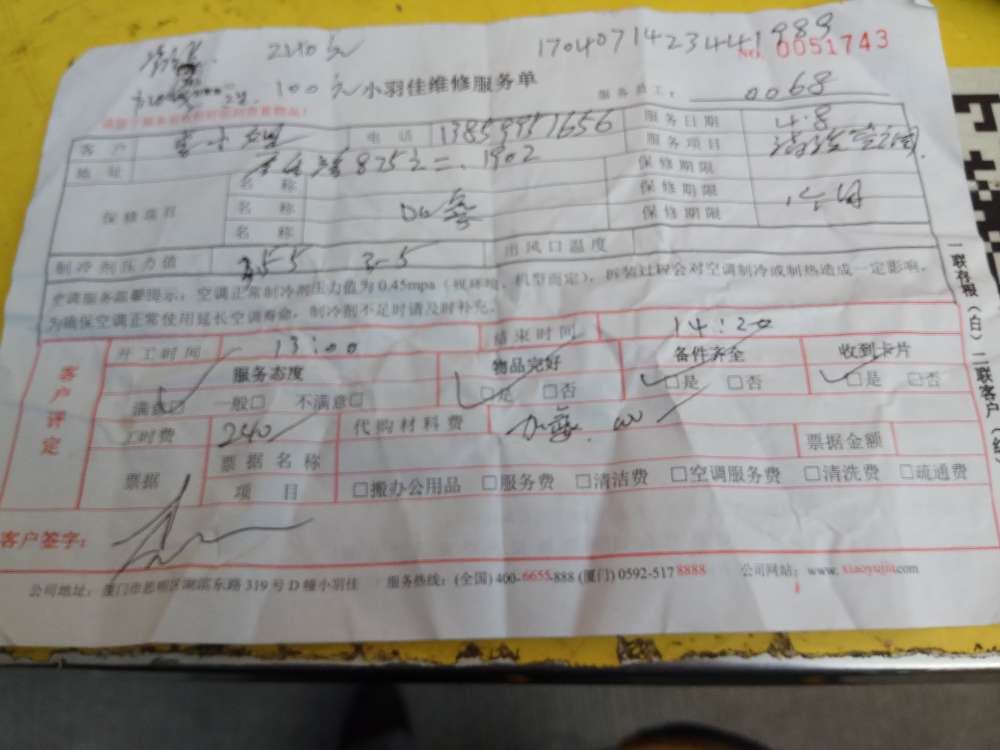 240元 17040714234441989
100元 小羽佳维修服务单 No. 0051743
服务员工: 0068
客户 小姐 电话 13859951656 服务日期 4.8
地址 825 二.1902 服务项目 清洗空调
保修项目 名称 加氟 保修期限
名称 保修期限
名称 保修期限
制冷剂压力值 出风口温度
空调服务温馨提示:空调正常制冷剂压力值为0.45mpa(视环境、机型而定),拆装过程会对空调制冷或制热造成一定影响,
为确保空调正常使用延长空调寿命,制冷剂不足时请及时补充。
客户评定
开工时间 13:00 结束时间 14:20
服务态度 物品完好 备件齐全 收到卡片
满意□ 一般□ 不满意□ □是 □否 □是 □否 □是 □否
工时费 240 代购材料费 加氟
票据 票据名称 票据金额
项目 □搬办公用品 □服务费 □清洁费 □空调服务费 □清洗费 □疏通费
客户签字:
公司地址:厦门市思明区湖滨东路319号D幢小羽佳 服务热线:(全国)400-6655-888 (厦门)0592-5178888 公司网站:www.xiaoyujia.com
一联存根(白)二联客户(红)